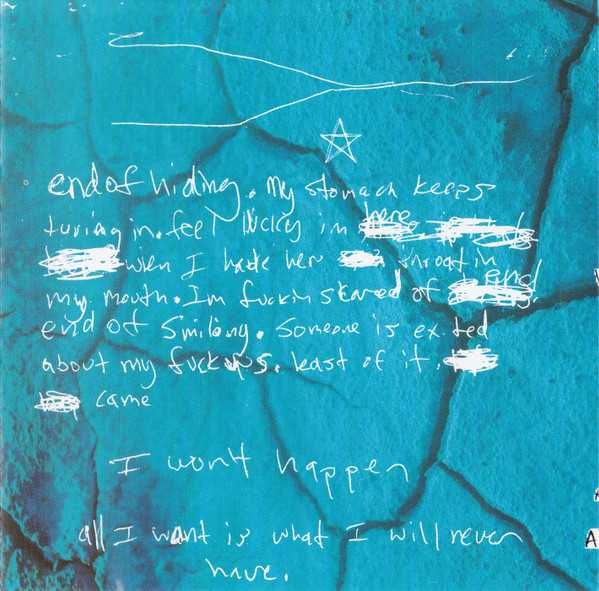 end of hiding. My stomach keeps
turing in. feel lucky im here
when I hade her throat in
my mouth. Im fuckin scared of end
end of smiling. Someone is ex.ted
about my fuckups. Least of it.
came
I won't happen
all I want is what I will never
have.
A